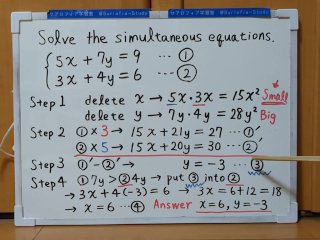 サアロフィア学習室 @Sarlofia-Study サアロフィア学習室 @Sarlofia-Study
Solve the simultaneous equations.
5x + 7y = 9 … ①
3x + 4y = 6 … ②
Step 1 delete x → 5x・3x = 15x² Small
delete y → 7y・4y = 28y² Big
Step 2 ① × 3 → 15x + 21y = 27 … ①'
② × 5 → 15x + 20y = 30 … ②'
Step 3 ①' - ②' → y = -3 … ③
Step 4 ① 7y > ② 4y → put ③ into ②
→ 3x + 4(-3) = 6 → 3x = 6 + 12 = 18
→ x = 6 … ④ Answer x = 6, y = -3